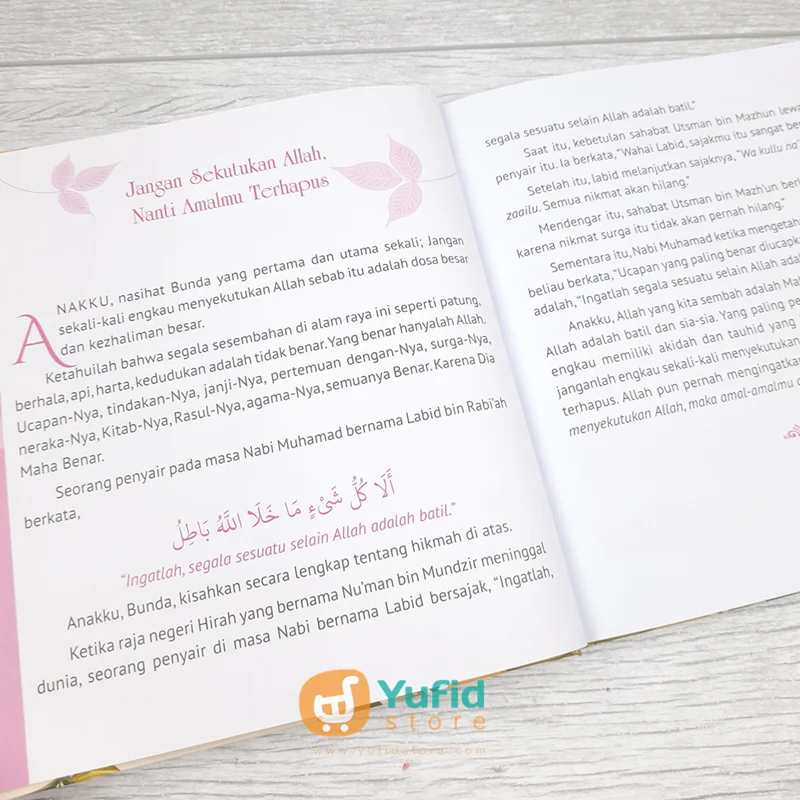 Jangan Sekutukan Allah,
Nanti Amalmu Terhapus
ANAKKU, nasihat Bunda yang pertama dan utama sekali; Jangan
sekali-kali engkau menyekutukan Allah sebab itu adalah dosa besar
dan kezhaliman besar.
Ketahuilah bahwa segala sesembahan di alam raya ini seperti patung,
berhala, api, harta, kedudukan adalah tidak benar. Yang benar hanyalah Allah.
Ucapan-Nya, tindakan-Nya, janji-Nya, pertemuan dengan-Nya, surga-Nya,
neraka-Nya, Kitab-Nya, Rasul-Nya, agama-Nya, semuanya Benar. Karena Dia
Maha Benar.
Seorang penyair pada masa Nabi Muhamad bernama Labid bin Rabi'ah
berkata,
أَلَا كُلُّ شَيْءٍ مَا خَلَا اللَّهَ بَاطِلُ
"Ingatlah, segala sesuatu selain Allah adalah batil."
Anakku, Bunda, kisahkan secara lengkap tentang hikmah di atas.
Ketika raja negeri Hirah yang bernama Nu'man bin Mundzir meninggal
dunia, seorang penyair di masa Nabi bernama Labid bersajak, "Ingatlah,
segala sesuatu selain Allah adalah batil."
Saat itu, kebetulan sahabat Utsman bin Mazhun
penyair itu. Ia berkata, "Wahai Labid, sajakmu itu sangat
Setelah itu, labid melanjutkan sajaknya, "Wa kullu
zaailu. Semua nikmat akan hilang."
Mendengar itu, sahabat Utsman bin Mazh'un
karena nikmat surga itu tidak akan pernah hilang."
Sementara itu, Nabi Muhamad ketika
beliau berkata, "Ucapan yang paling benar
adalah, "Ingatlah segala sesuatu selain Allah
Anakku, Allah yang kita sembah adalah
Allah adalah batil dan sia-sia. Yang paling
engkau memiliki akidah dan tauhid yang
janganlah engkau sekali-kali menyekutukan
terhapus. Allah pun pernah
menyekutukan Allah, maka amal-amalmu
Yufid
store
www.yufidstore.com